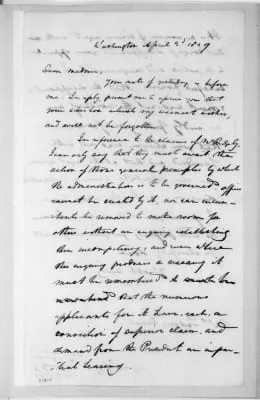 Washington April 2d 1849
Dear madam,
Your note of yesterday is before
me. In reply, permit me to assure you that
your son has which my warmest wishes,
and will not be forgotten.
In reference to the claims of
I can only say, that they must await the
action of those general principles by which
the administration is to be governed. Offices
cannot be created by it, nor can incum-
bents be removed to make room for
others without an inquiry establishing
their incompetency; and even where
the inquiry produces a vacancy it
must be remembered
that the numerous
applicants for it have, each, a
conviction of superior claim, and
demand from the President an impar-
tial hearing.